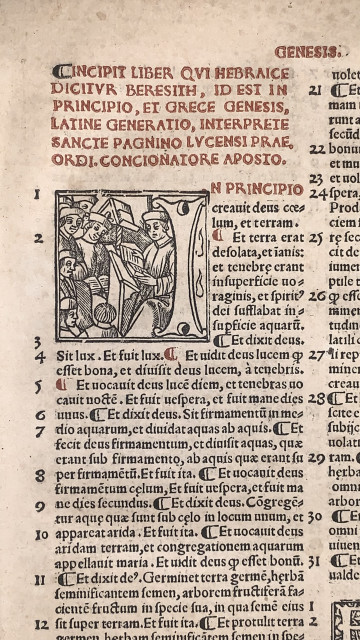 GENESIS.
INCIPIT LIBER QVI HEBRAICE
DICITVR BERESITH, ID EST IN
PRINCIPIO, ET GRECE GENESIS,
LATINE GENERATIO, INTERPRETE
SANCTE PAGNINO LVCENSI PRAE,
ORDI. CONCIONATORE APOSTO.
1 N PRINCIPIO
creauit deus cœ-
lum, et terram.
2 ¶ Et terra erat
desolata, et īanis:
et tenebrę erant
in superficie uo-
raginis, et spiritꝰ
dei sufflabat in
supficie aquarū.
3 ¶ Et dixit deus.
4 Sit lux. Et fuit lux. ¶ Et uidit deus lucem ꝙ
esset bona, et diuisit deus lucem, à tenebris.
5 ¶ Et uocauit deus lucē diem, et tenebras uo
cauit noctē. Et fuit uespera, et fuit mane dies
6 unus. ¶ Et dixit deus. Sit firmamentū in me-
7 dio aquarum, et diuidat aquas ab aquis. ¶ Et
fecit deus firmamentum, et diuisit aquas, quæ
erant sub firmamento, ab aquis quæ erant su
8 per firmamētū. Et fuit ita. ¶ Et uocauit deus
firmamentum celum, Et fuit uespera, et fuit ma
9 ne dies secundus. ¶ Et dixit deus. Cōgrege-
tur aquę quæ sunt sub cęlo in locum unum, et
10 appareat arida. Et fuit ita. ¶ Et uocauit deus
aridam terram, et congregationem aquarum
appellauit maria. Et uidit deus ꝙ esset bonū.
11 ¶ Et dixit deꝰ. Germinet terra germē, herbā
seminificantem semen, arborem fructiferā fa-
cientē fructum in specie sua, in qua semē eius
12 sit super terram. Et fuit ita. ¶ Et protulit terra
germen, herbam seminificātem semen in spe-
21 ¶ Et
22 bonum
23 et uol
24
25
26
27
28 ¶ Et
29 ram. ¶
30
31 ¶ Et
1
2